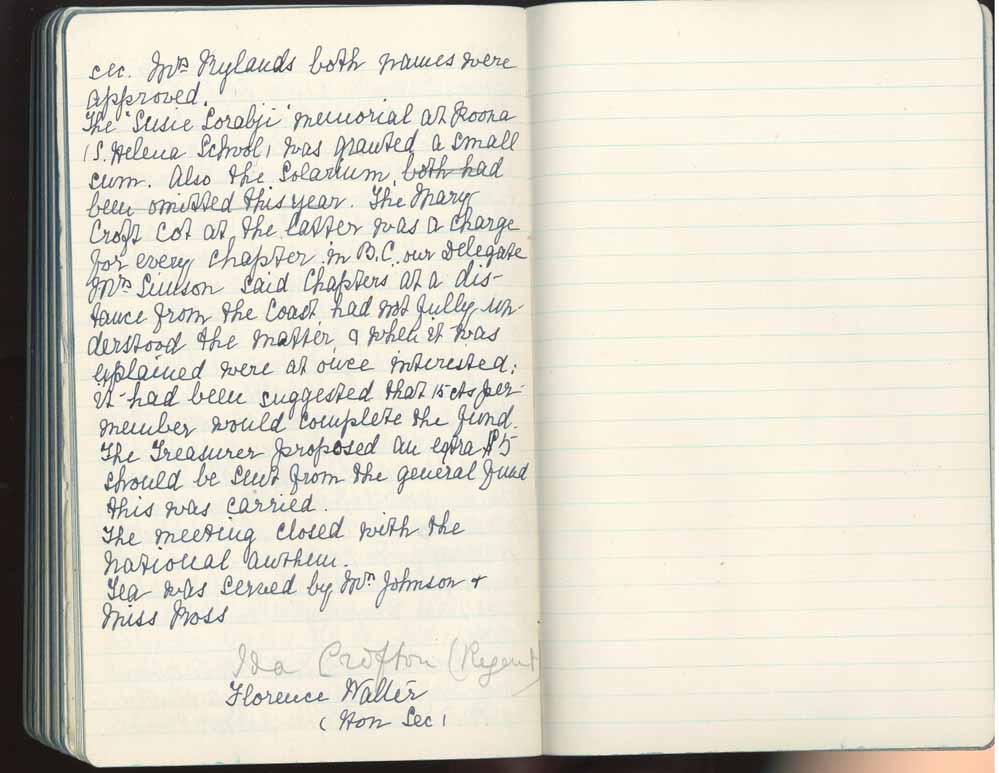 sec. Mrs Rylands both names were
approved.
The 'Susie Sorabji' memorial at Poona
(S. Helena School) was granted a small
sum. Also the Solarium, both had
been omitted this year. The Mary
Croft cot at the latter was a charge
for every chapter in B.C. our Delegate
Mrs Simson said Chapters at a dis-
tance from the Coast had not fully un-
derstood the matter, & when it was
explained were at once interested;
it had been suggested that 15 cts per
member would complete the fund.
The Treasurer proposed an extra $5
should be sent from the general fund
this was carried.
The meeting closed with the
national anthem.
Tea was served by Mrs Johnson &
Miss Moss
Ida Crofton (Regent)
Florence Walter
(Hon Sec)